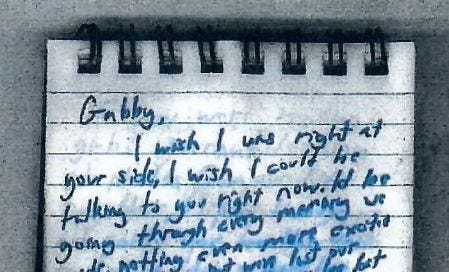 Gabby,
I wish I was right at
your side, I wish I could be
talking to you right now. Id be
going through every memory we
even more
but